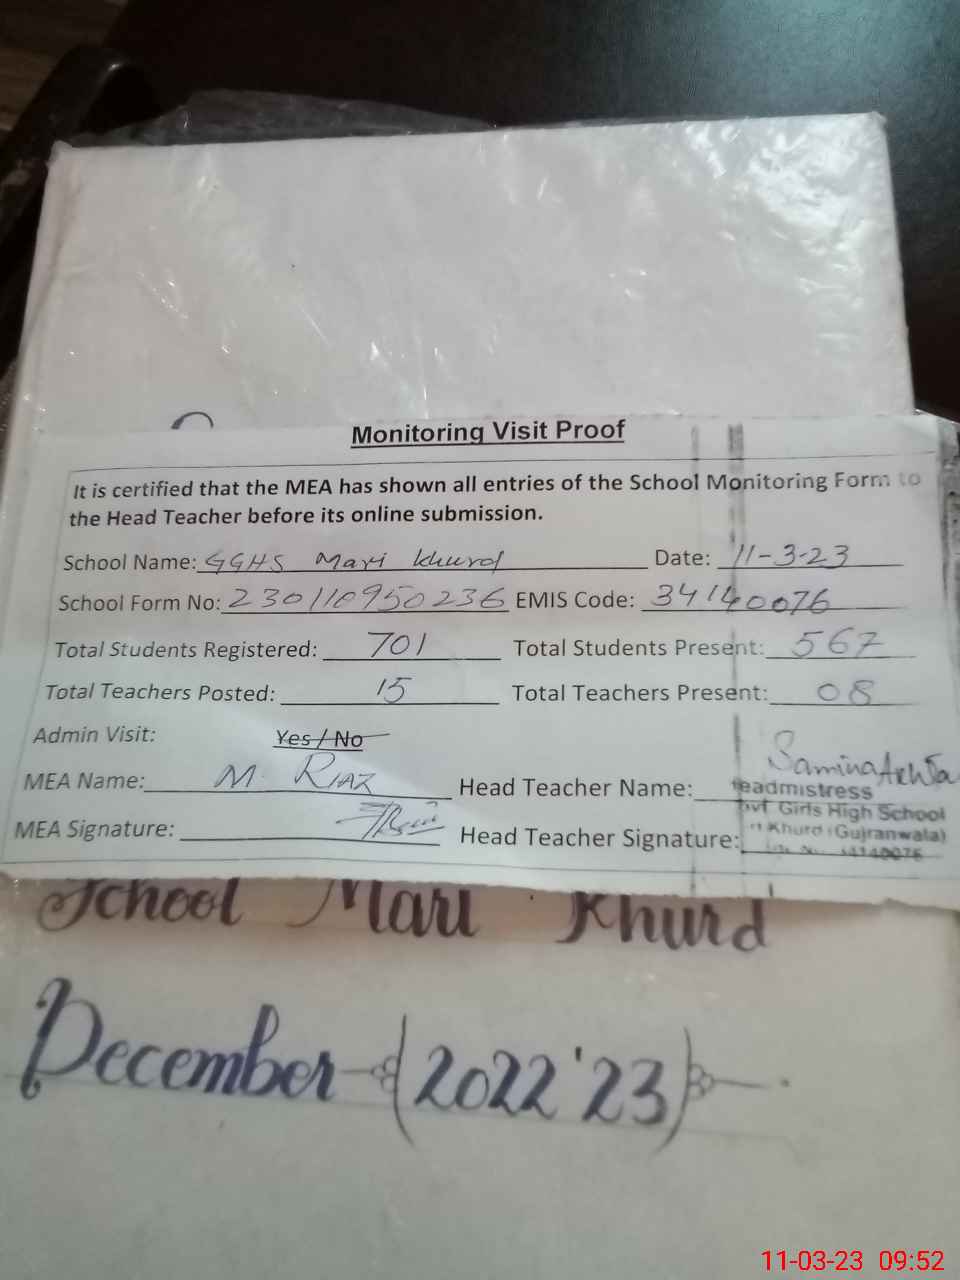 Monitoring Visit Proof
It is certified that the MEA has shown all entries of the School Monitoring Form to
the Head Teacher before its online submission.
School Name: GGHS Mari Khurd Date: 11-3-23
School Form No: 230110950236 EMIS Code: 34140076
Total Students Registered: 701 Total Students Present: 567
Total Teachers Posted: 15 Total Teachers Present: 08
Admin Visit: Yes / No
MEA Name: M. RIAZ Head Teacher Name: Samina
Headmistress
Girls High School
MEA Signature: Head Teacher Signature: Khurd (Gujranwala)
34140076
School Mari Khurd
December (2022'23)
11-03-23 09:52